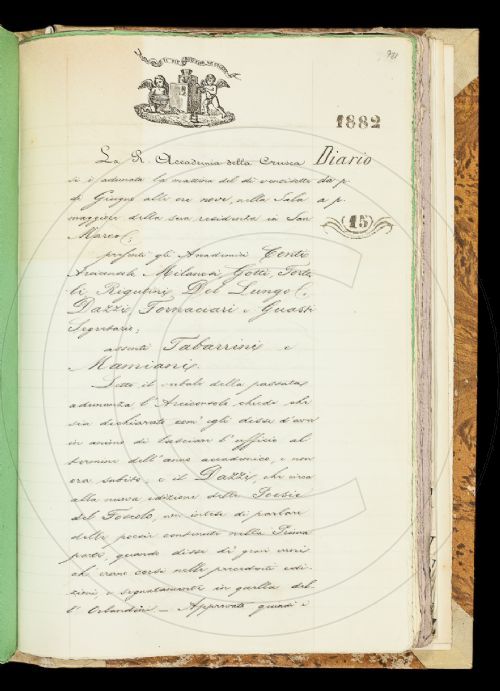 1882
La R. Accademia della Crusca
Diario
si è adunata la mattina del dì ventisette
da p
di Giugno alle ore nove, nella Sala
a p
maggiore della sua residenza in San
15
Marco;
presenti gli Accademici Conti
Arciconsolo, Milanesi, Gotti, Torta
li, Rigutini, Del Lungo,
Dazzi, Fornaciari e Guasti
Segretario;
assenti Tabarrini e
Mamiani.
Letto il verbale della passata
adunanza l'Arciconsolo chiede che
sia dichiarato com' egli disse d'aver
in animo di lasciar l'ufficio al
termine dell'anno accademico, e non
ora subito; e il Dazzi, che circa
alla nuova edizione delle Poesie
del Foscolo, intese di parlare
delle poesie contenute nella Prima
parte, quando disse di gravi errori
ch' erano corsi nelle precedenti edi-
zioni e segnatamente in quella del-
l' Orlandini. — Approvato quindi il